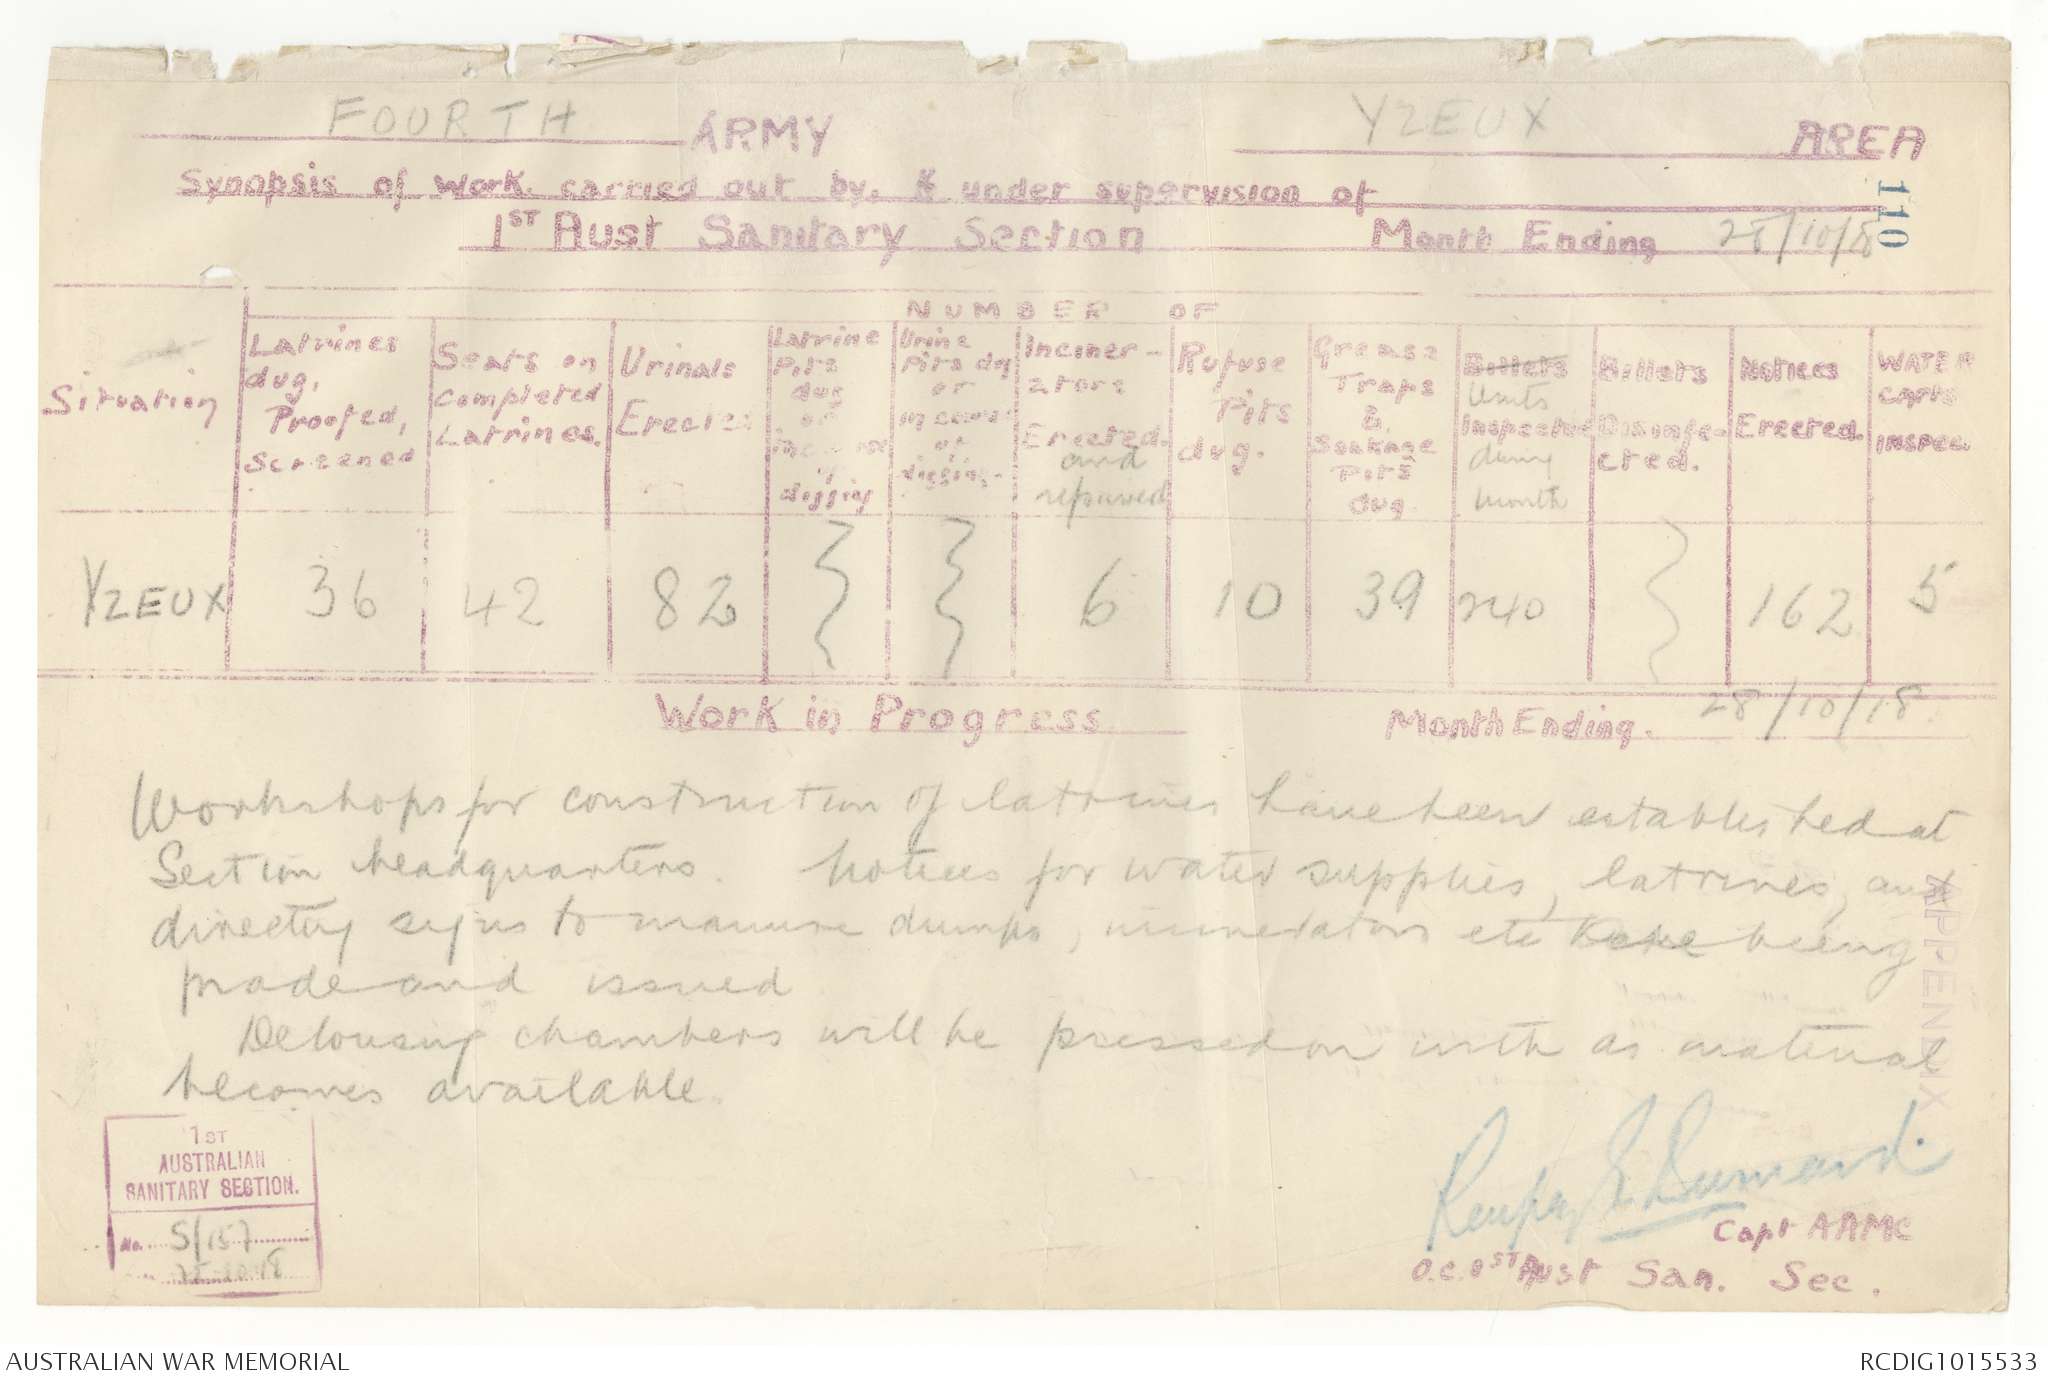 FOURTH ARMY YZEUX AREA
Synopsis of Work carried out by, & under supervision of
1ST Aust Sanitary Section Month Ending 28/10/18
110
NUMBER OF
Situation
Latrines dug, Proofed, Screened
Seats on Completed Latrines.
Urinals Erected
Latrine Pits dug or in course of digging
Urine Pits dug or in course of digging
Inciner-ators Erected. and repaired
Refuse Pits dug.
Grease Traps & Soakage Pits dug
Billets Units Inspected during month
Billets Disinfe-cted.
Notices Erected.
WATER CARTS INSPEC.
YZEUX 36 42 82 } } 6 10 39 240 } 162 5
Work in Progress Month Ending. 28/10/18
Workshops for construction of latrines have been established at
Section headquarters. Notices for water supplies, latrines, and
directing signs to manure dumps, incinerators etc being
made and issued
Delousing chambers will be pressed on with as material
becomes available.
APPENDIX
1ST
AUSTRALIAN
SANITARY SECTION.
No. S/157
Capt AAMC
O.C. 1ST Aust San. Sec.
AUSTRALIAN WAR MEMORIAL RCDIG1015533